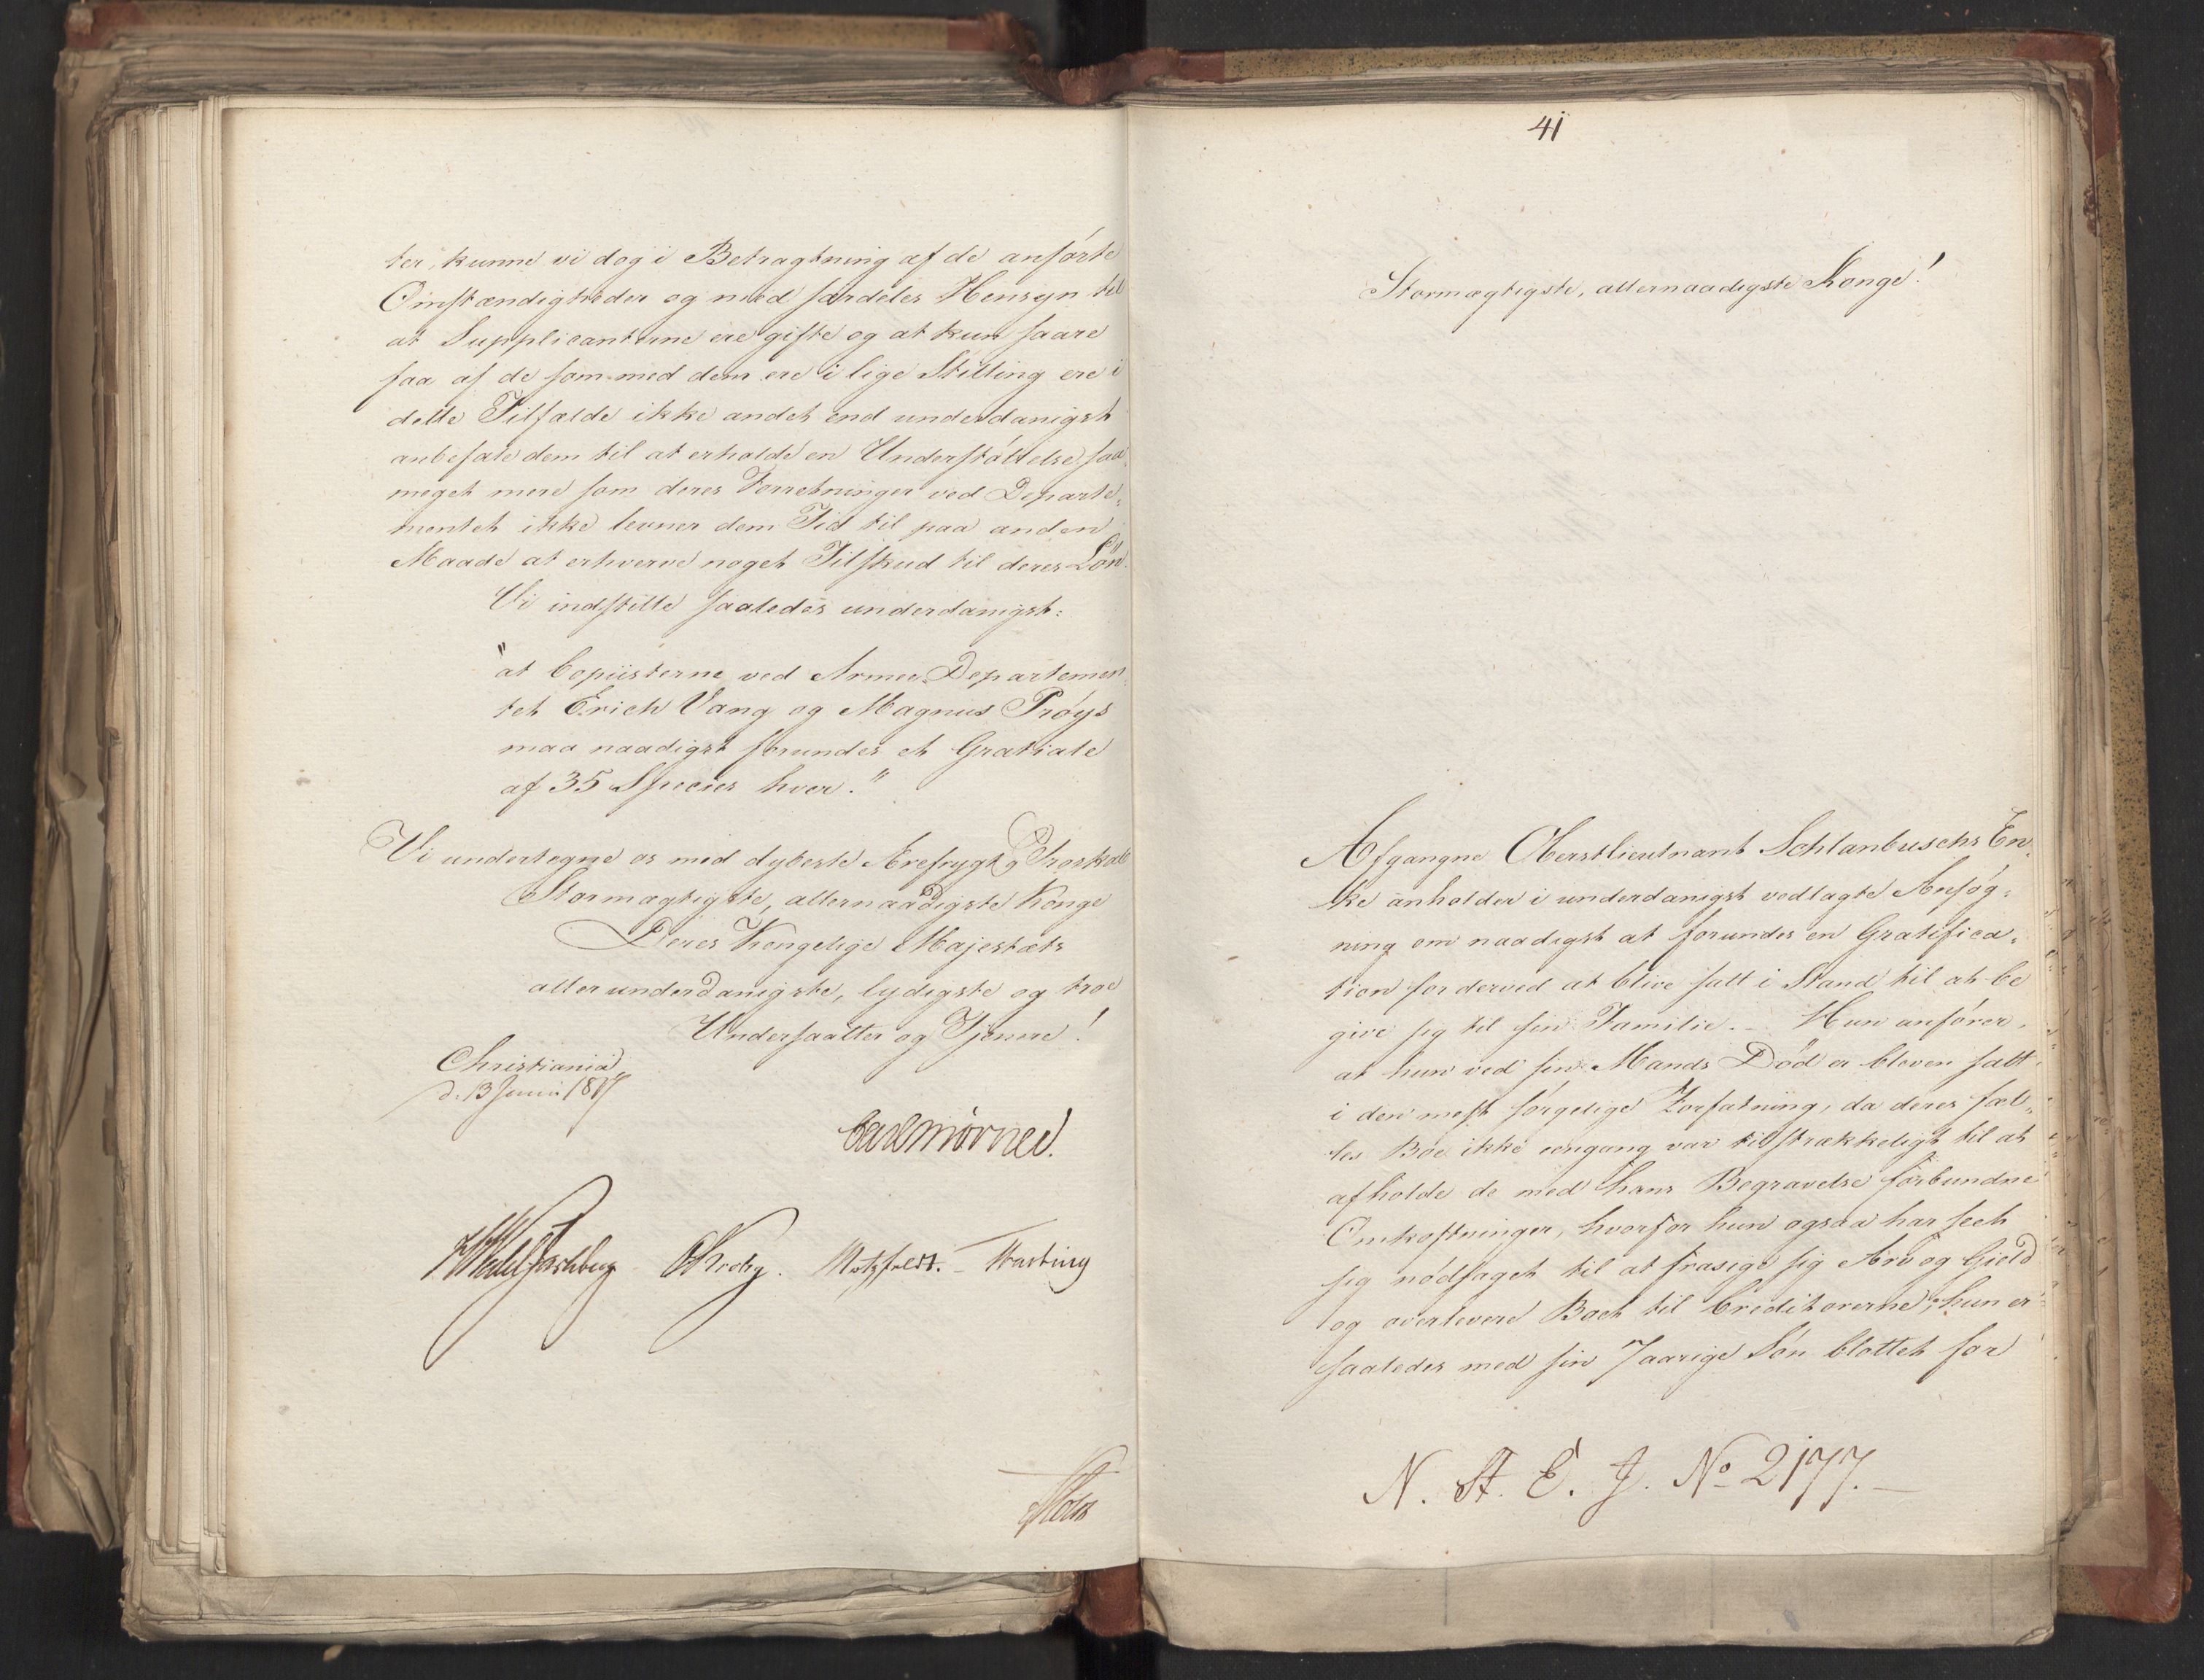 ter, kunne vi dog i Betragtning af de anførte
Omstændigheder og med særdeles Hensyn til
at Supplicanterne ere gifte og at kun saare
faa af de som med dem ere i lige Stilling ere i
dette Tilfælde ikke andet end underdanigst
anbefale dem til at erholde en Understøttelse, saa
meget mere som deres Forretninger ved Departe-
mentet ikke levner dem Tid til paa anden
Maade at erhverve noget Tilskud til deres Løn.
Vi indstille saaledes underdanigst:
"at Copiisterne ved Armee-Departemen-
tet Erich Vang og Magnus Prøys
maa naadigst forundes et Gratiale
af 35 Species hver."
Vi undertegne os med dybeste Ærefrygt og Troskab
Stormægtigste, allernaadigste Konge
Deres Kongelige Majestæts
allerunderdanigste, lydigste og troe
Undersaatter og Tjenere!
Christiania,
d. 13 Junii 1817
Carl Mörner.
Wedel Jarlsberg Krohg. Motzfeldt. Treschow
41
Stormægtigste, allernaadigste Konge!
Afgangne Oberstlieutnant Schlanbuschs En-
ke anholder i underdanigst vedlagte Ansøg-
ning om naadigst at forundes en Gratifica-
tion for derved at blive satt i Stand til at be
give sig til sin Familie. – Hun anfører,
at hun ved sin Mands Død er bleven satt
i den mest sørgelige Forfatning, da deres fæl-
les Boe ikke engang var tilstrækkeligt til at
afholde de med hans Begravelse forbundne
Omkostninger, hvorfor hun ogsaa har seet
sig nødsaget til at frasige sig Arv og Gield
og overlevere Boet til Creditorerne; hun er
saaledes med sin 7aarige Søn blottet for
N. St. E. J. No 2177.